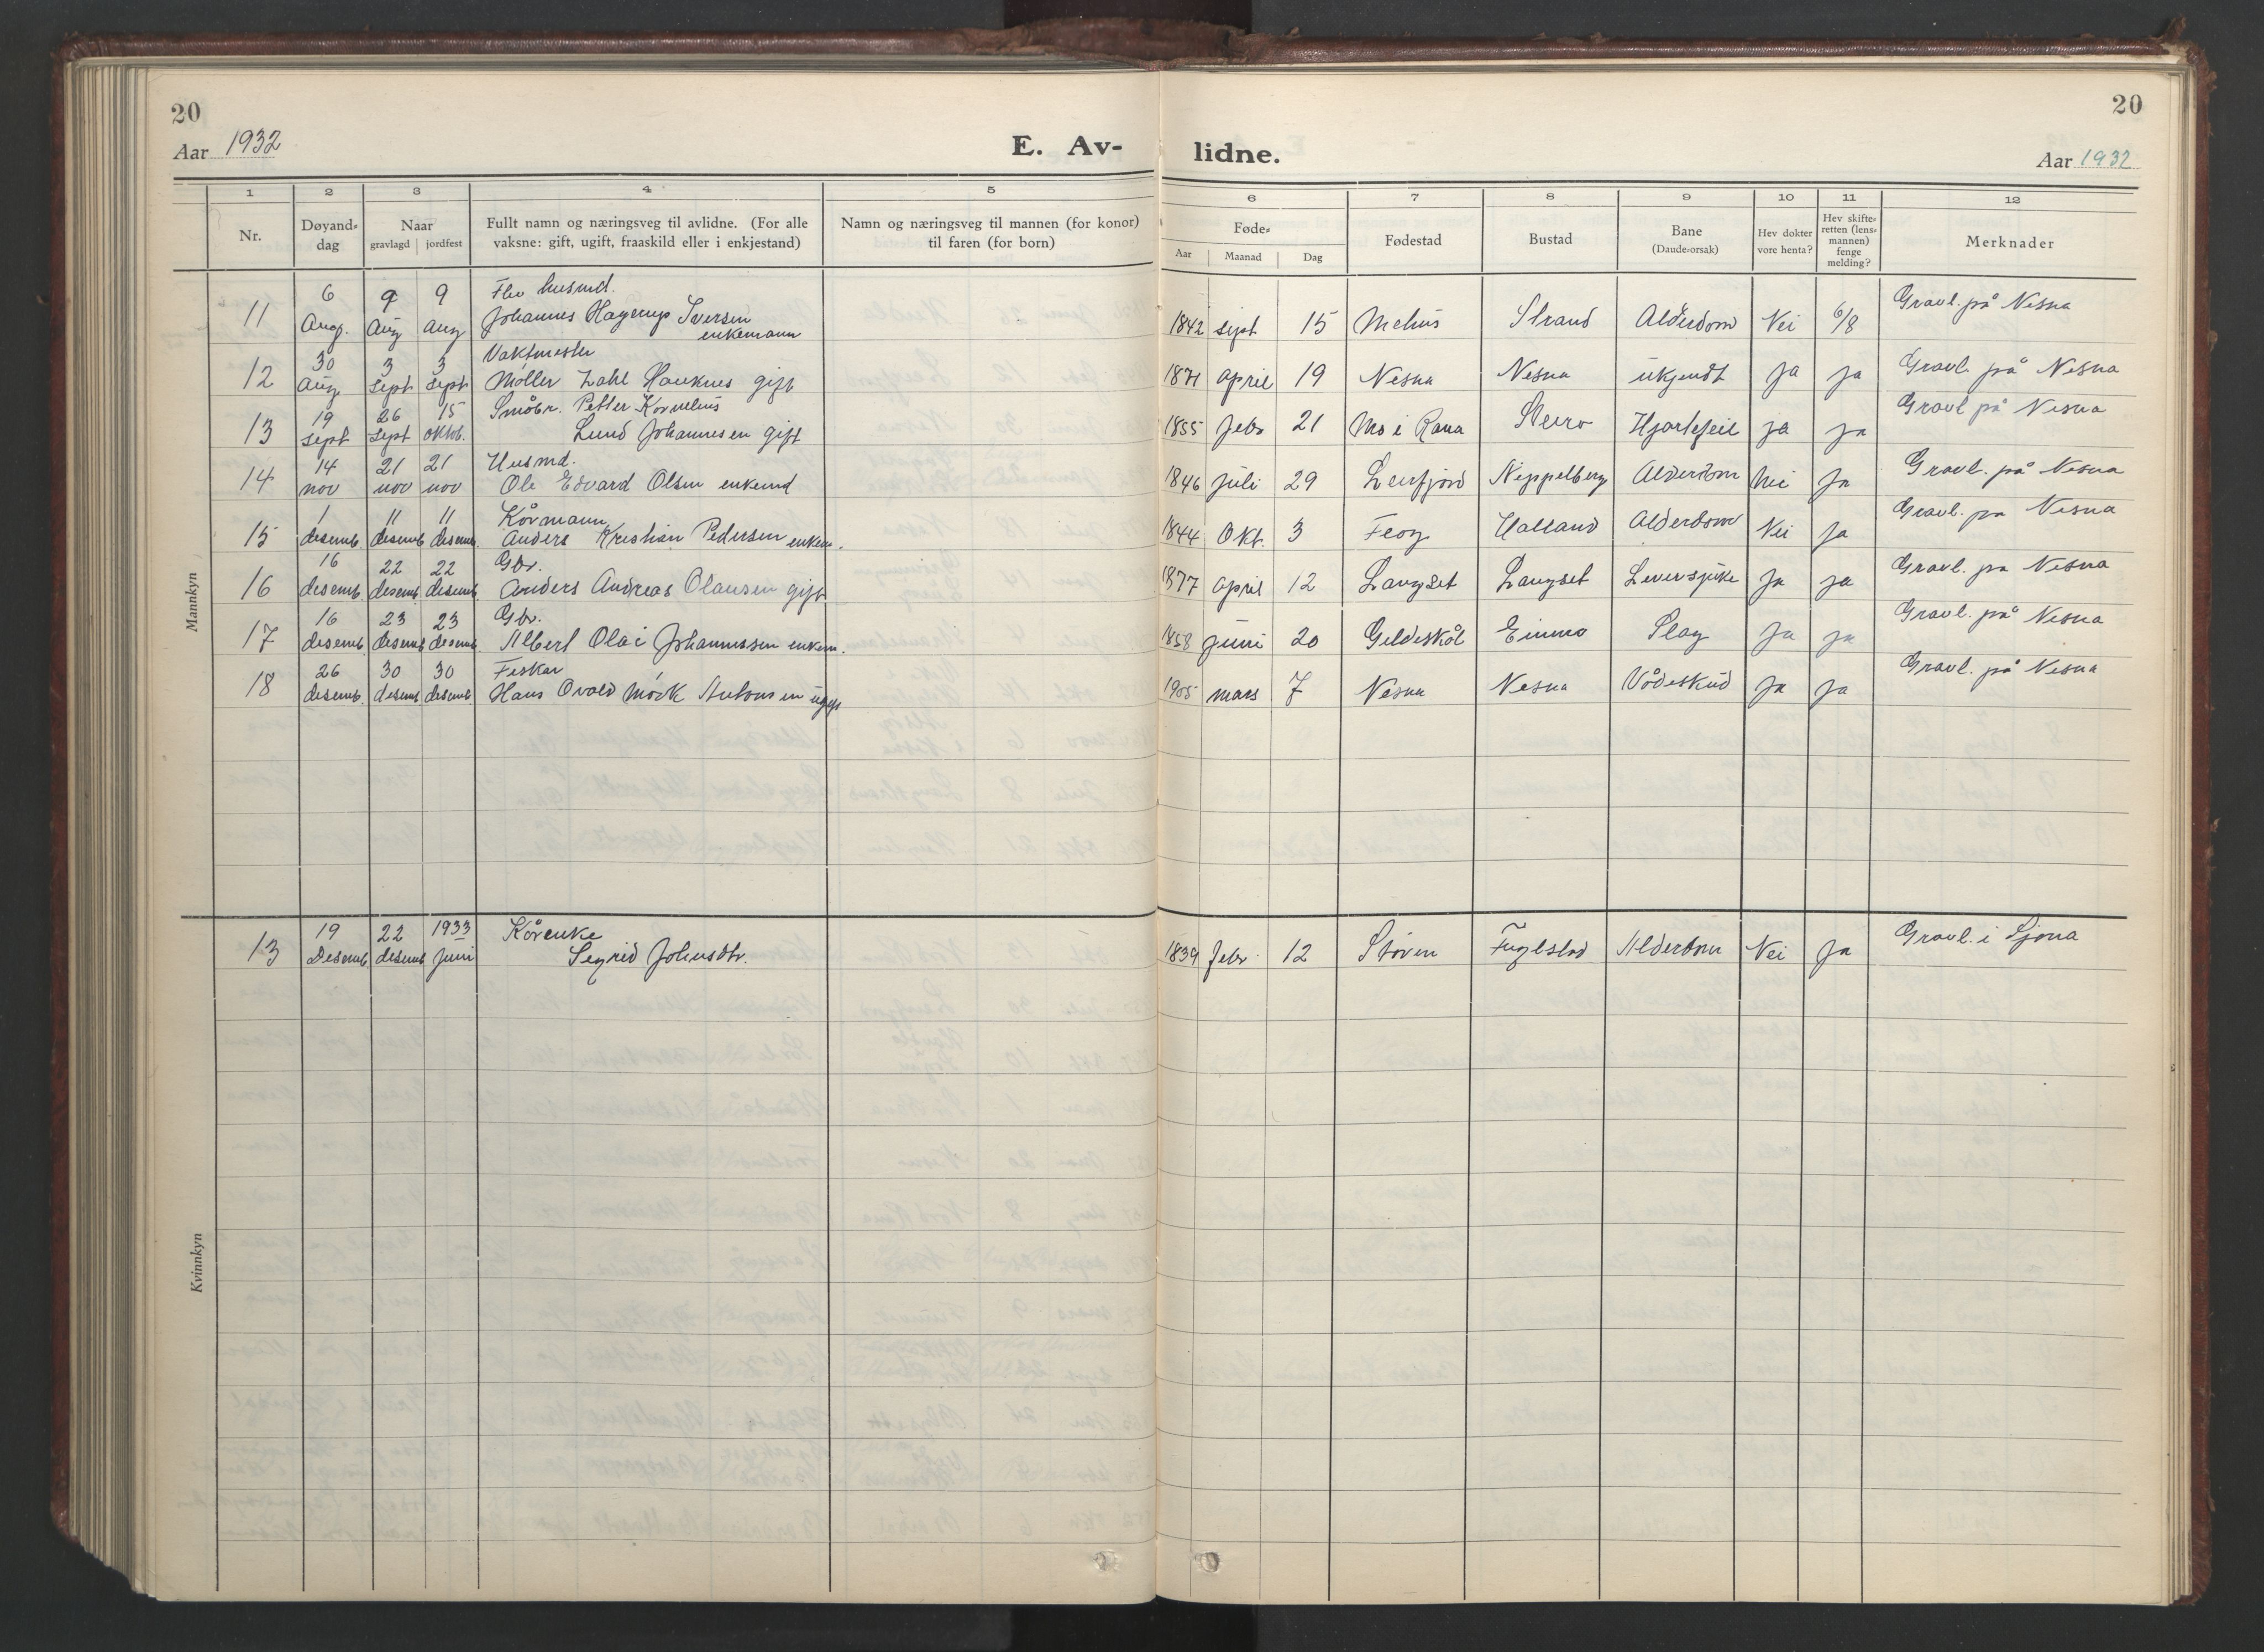 20
Aar 1932
E. Av-
lidne.
20
Aar 1932
1 2 3 4 5
6 7 8 9 10 11 12
Nr.
Døyand-
dag
Naar
gravlagd jordfest
Fullt namn og næringsveg til avlidne. (For alle
vaksne: gift, ugift, fraaskild eller i enkjestand)
Namn og næringsveg til mannen (for konor)
til faren (for born)
Føde-
Aar Maanad Dag
Fødestad
Bustad
Bane
(Daude-orsak)
Hev dokter
vore henta?
Hev skifte-
retten (lens-
mannen)
fenge
melding?
Merknader
Mannkyn
6 9 9 husmd.
11 Aug. Aug Aug Johannes Hagerup Iversen
enkemann
1842 sept 15 Melhus Strand Alderdom Nei 6/8 Gravl. på Nesna
30 3 3 Vaktmester
12 Aug sept sept Møller Zahl Hauknes gift 1871 april 19 Nesna Nesna ukjendt ja ja Gravl. på Nesna
19 26 15 Småbr. Petter Kornelius
13 sept sept oktob. Lund Johannesen gift 1855 febr 21 Mo i Rana Hjartefeil ja ja Gravl på Nesna
14 21 21 Husmd.
14 nov nov nov Ole Edvard Olsen enkemd 1846 juli 29 Leirfjord Neppelberg Alderdom Nei Ja Gravl. på Nesna
1 11 11 Kårmann
15 desemb. desemb. desemb. Anders Kristian Pedersen enkem. 1844 Okt. 3 Haaland Alderdom Nei Ja Gravl. på Nesna
16 22 22 Gbr.
16 desemb. desemb. desemb. Anders Andreas Olausen gift 1877 april 12 Langset Langset Leversjuke Ja ja Gravl. på Nesna
16 23 23 Gbr.
17 desemb. desemb. desemb. Albert Olai Johannessen enkem. 1858 juni 20 Gildeskål Slag Ja ja Gravl. på Nesna
26 30 30 Fiskar
18 desemb. desemb. desemb. Hans Ovald Mörk Antonsen ugift 1905 mars 7 Nesna Nesna Vådeskud Ja Ja Gravl. på Nesna
Kvinnkyn
19 22 1933 Kårenke
13 Desemb. desemb. juni Sigrid Johnsdtr. 1839 febr 12 Støven Fuglstad Alderdom Nei Ja Gravl. i Sjona